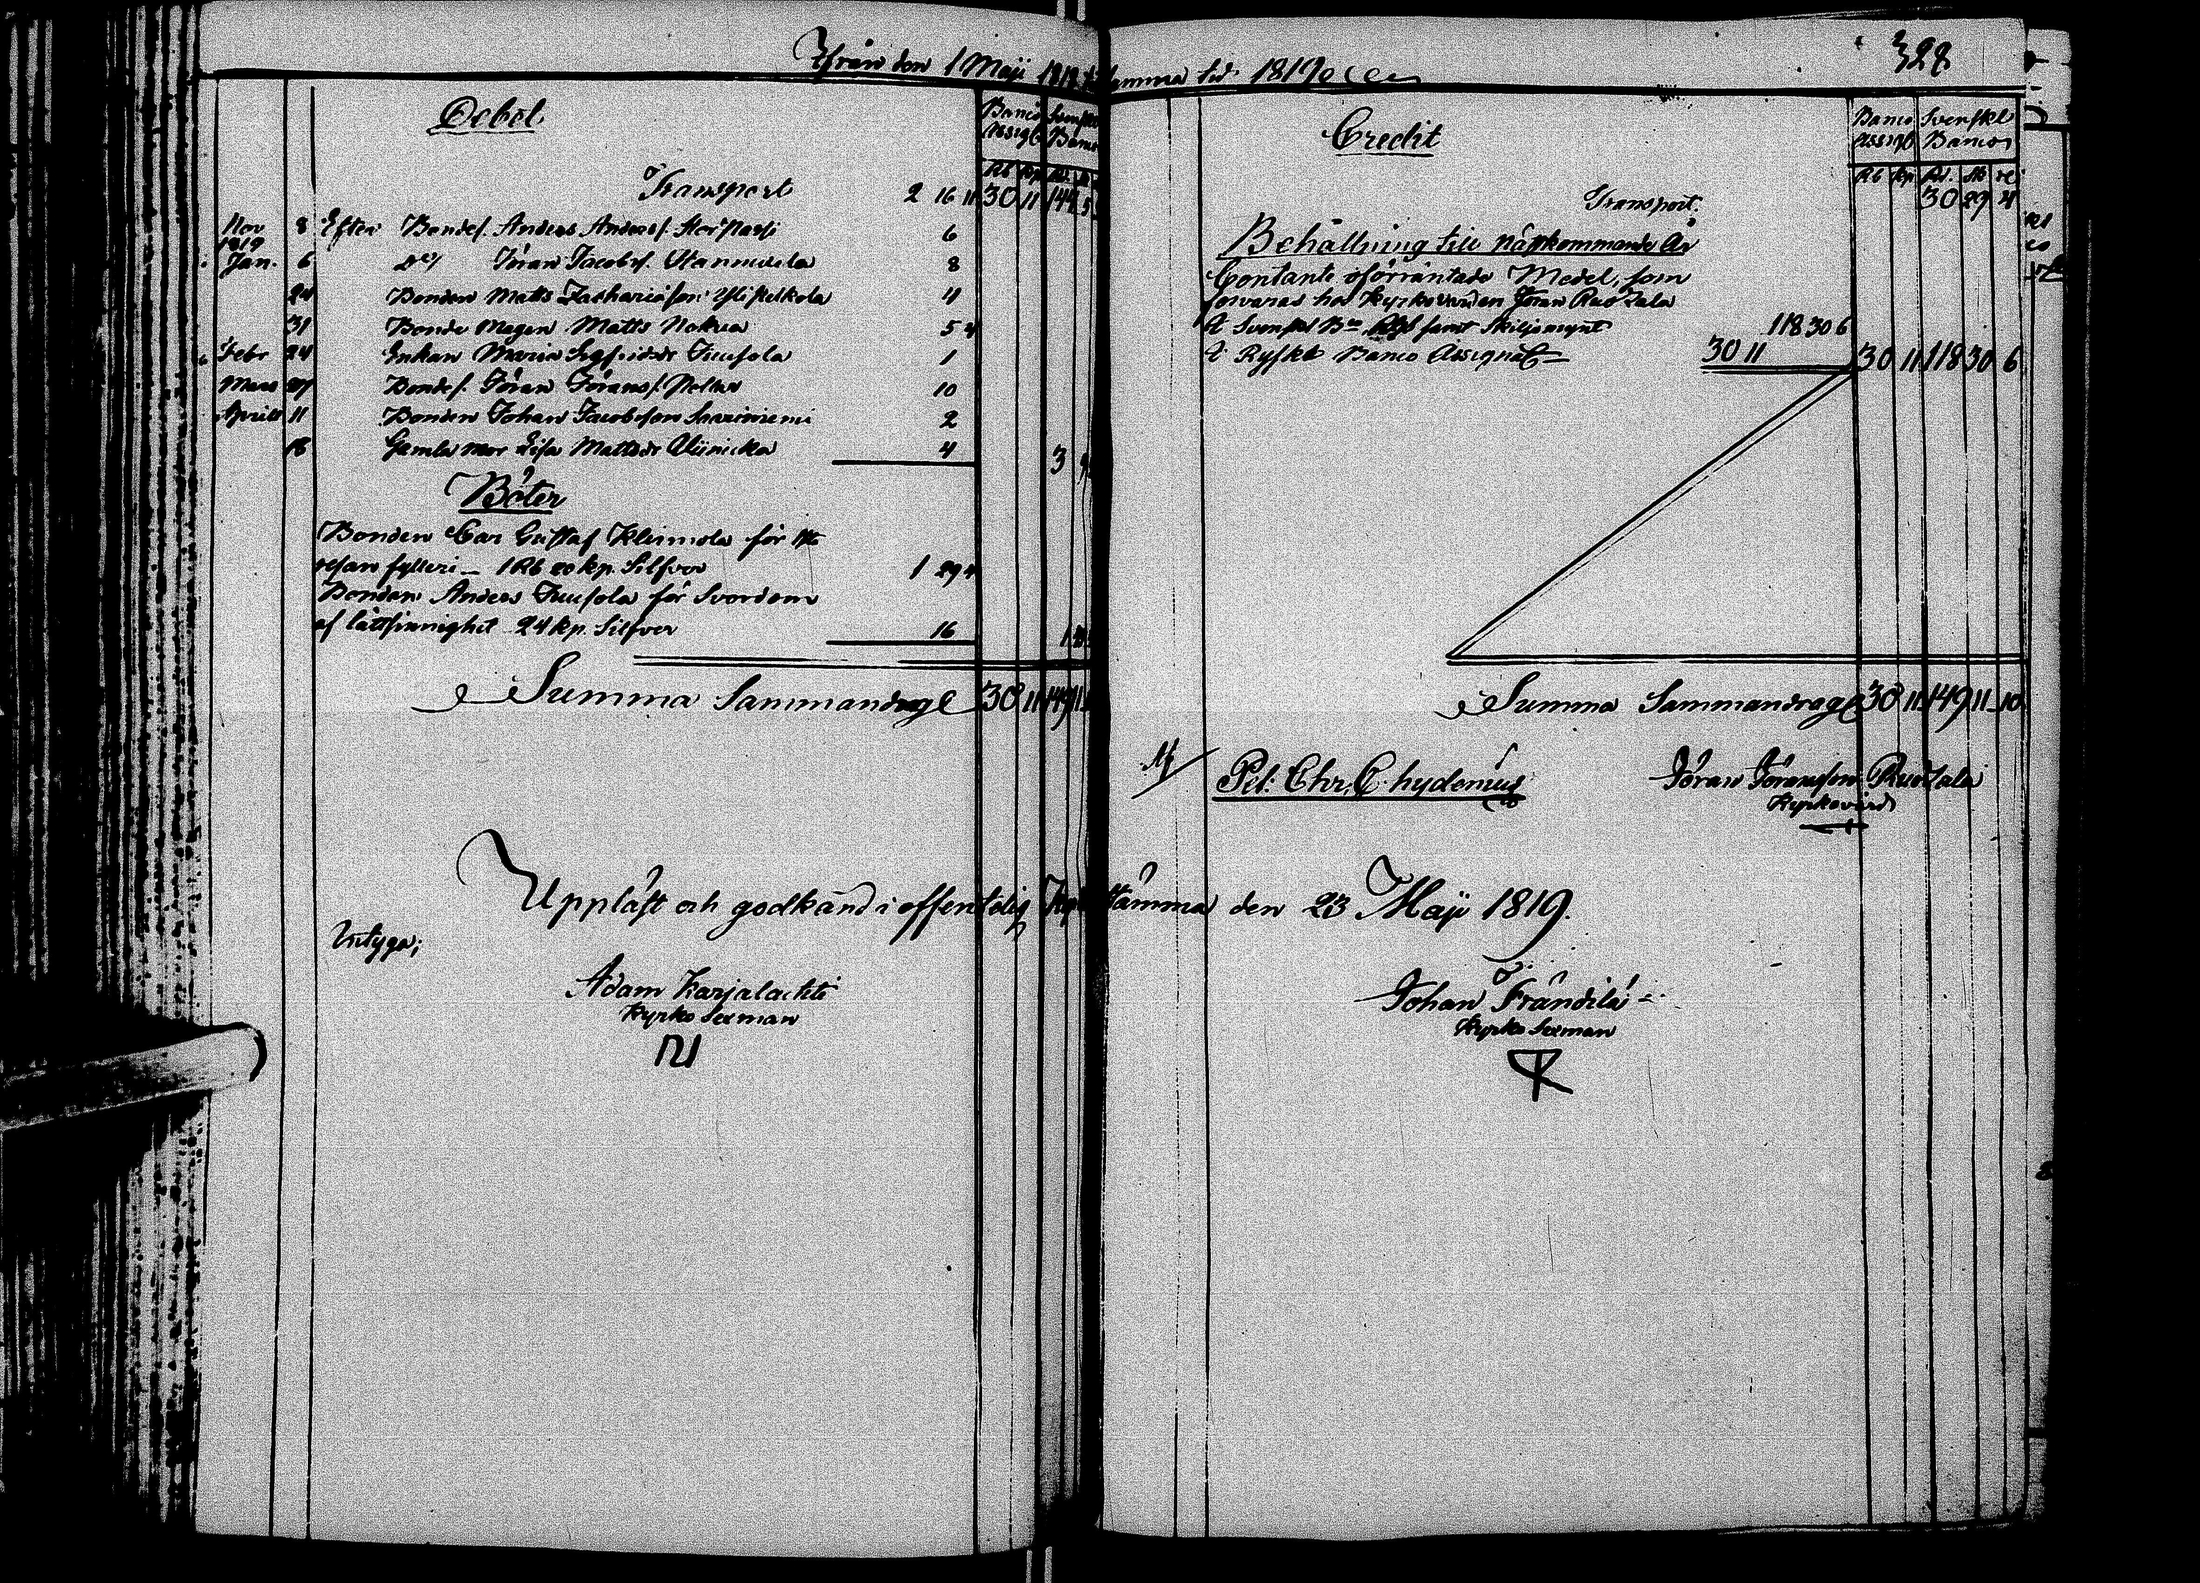 Ifrån den 1 Maji 1818 til samma tid 1819
328
Debet
Banco Assign
Svenskt Banco
Rb kp
Transport 2 16 11 30 11 144 5
Nov 8 Efter Bondes. Anders Anderss. Storpassi 6
1819
Jan. 6 Do Jöran Jacobss. 8
24 Bonden Matts Zachariæson Ylikelkola 4
31 Bonde Magen Matts Nokua 5 4
Febr 24 Enkan Maria Sigfridsdr Juusola 1
Mars 27 Bondes. Jöran Jöranss. 10
Aprill 11 Bonden Johan Jacobsson Saariniemi 2
18 Gamla mor Lisa Mattsdr 4
3
Böter
Bonden Carl Gustaf Klemola för 1sta
resan fylleri - 1 Rb 20 kp. Silfver 1 29 4
Bonden Anders Juusola för Svordom
af lättsinnighet 24 kp. Silfver 16
Summa Sammandrag 30 11 149 11
Credit
Banco Assign
Svenskt Banco
Rb kp Rd. sk
Transport. 30 29 4
Behållning till nästkommande År
Contante oförräntade Medel, som
förvaras hos Kyrkovärden Jöran Ruotzala
I Svenskt Bco samt Skiljemynt 118 30 6
I Ryskt Banco Assignat 30 11 30 11 118 30 6
Summa Sammandrag 30 11 149 11 10
Pet: Chr. Chydenius
Jöran Jöransson Ruotzala
Kyrkovärd
Uppläst och godkänd i offentelig Kyrkostämma den 23 Maji 1819.
Intyga;
Adam Karjalachti
Kyrko Sexman
Johan Frändilä
Kyrko Sexman